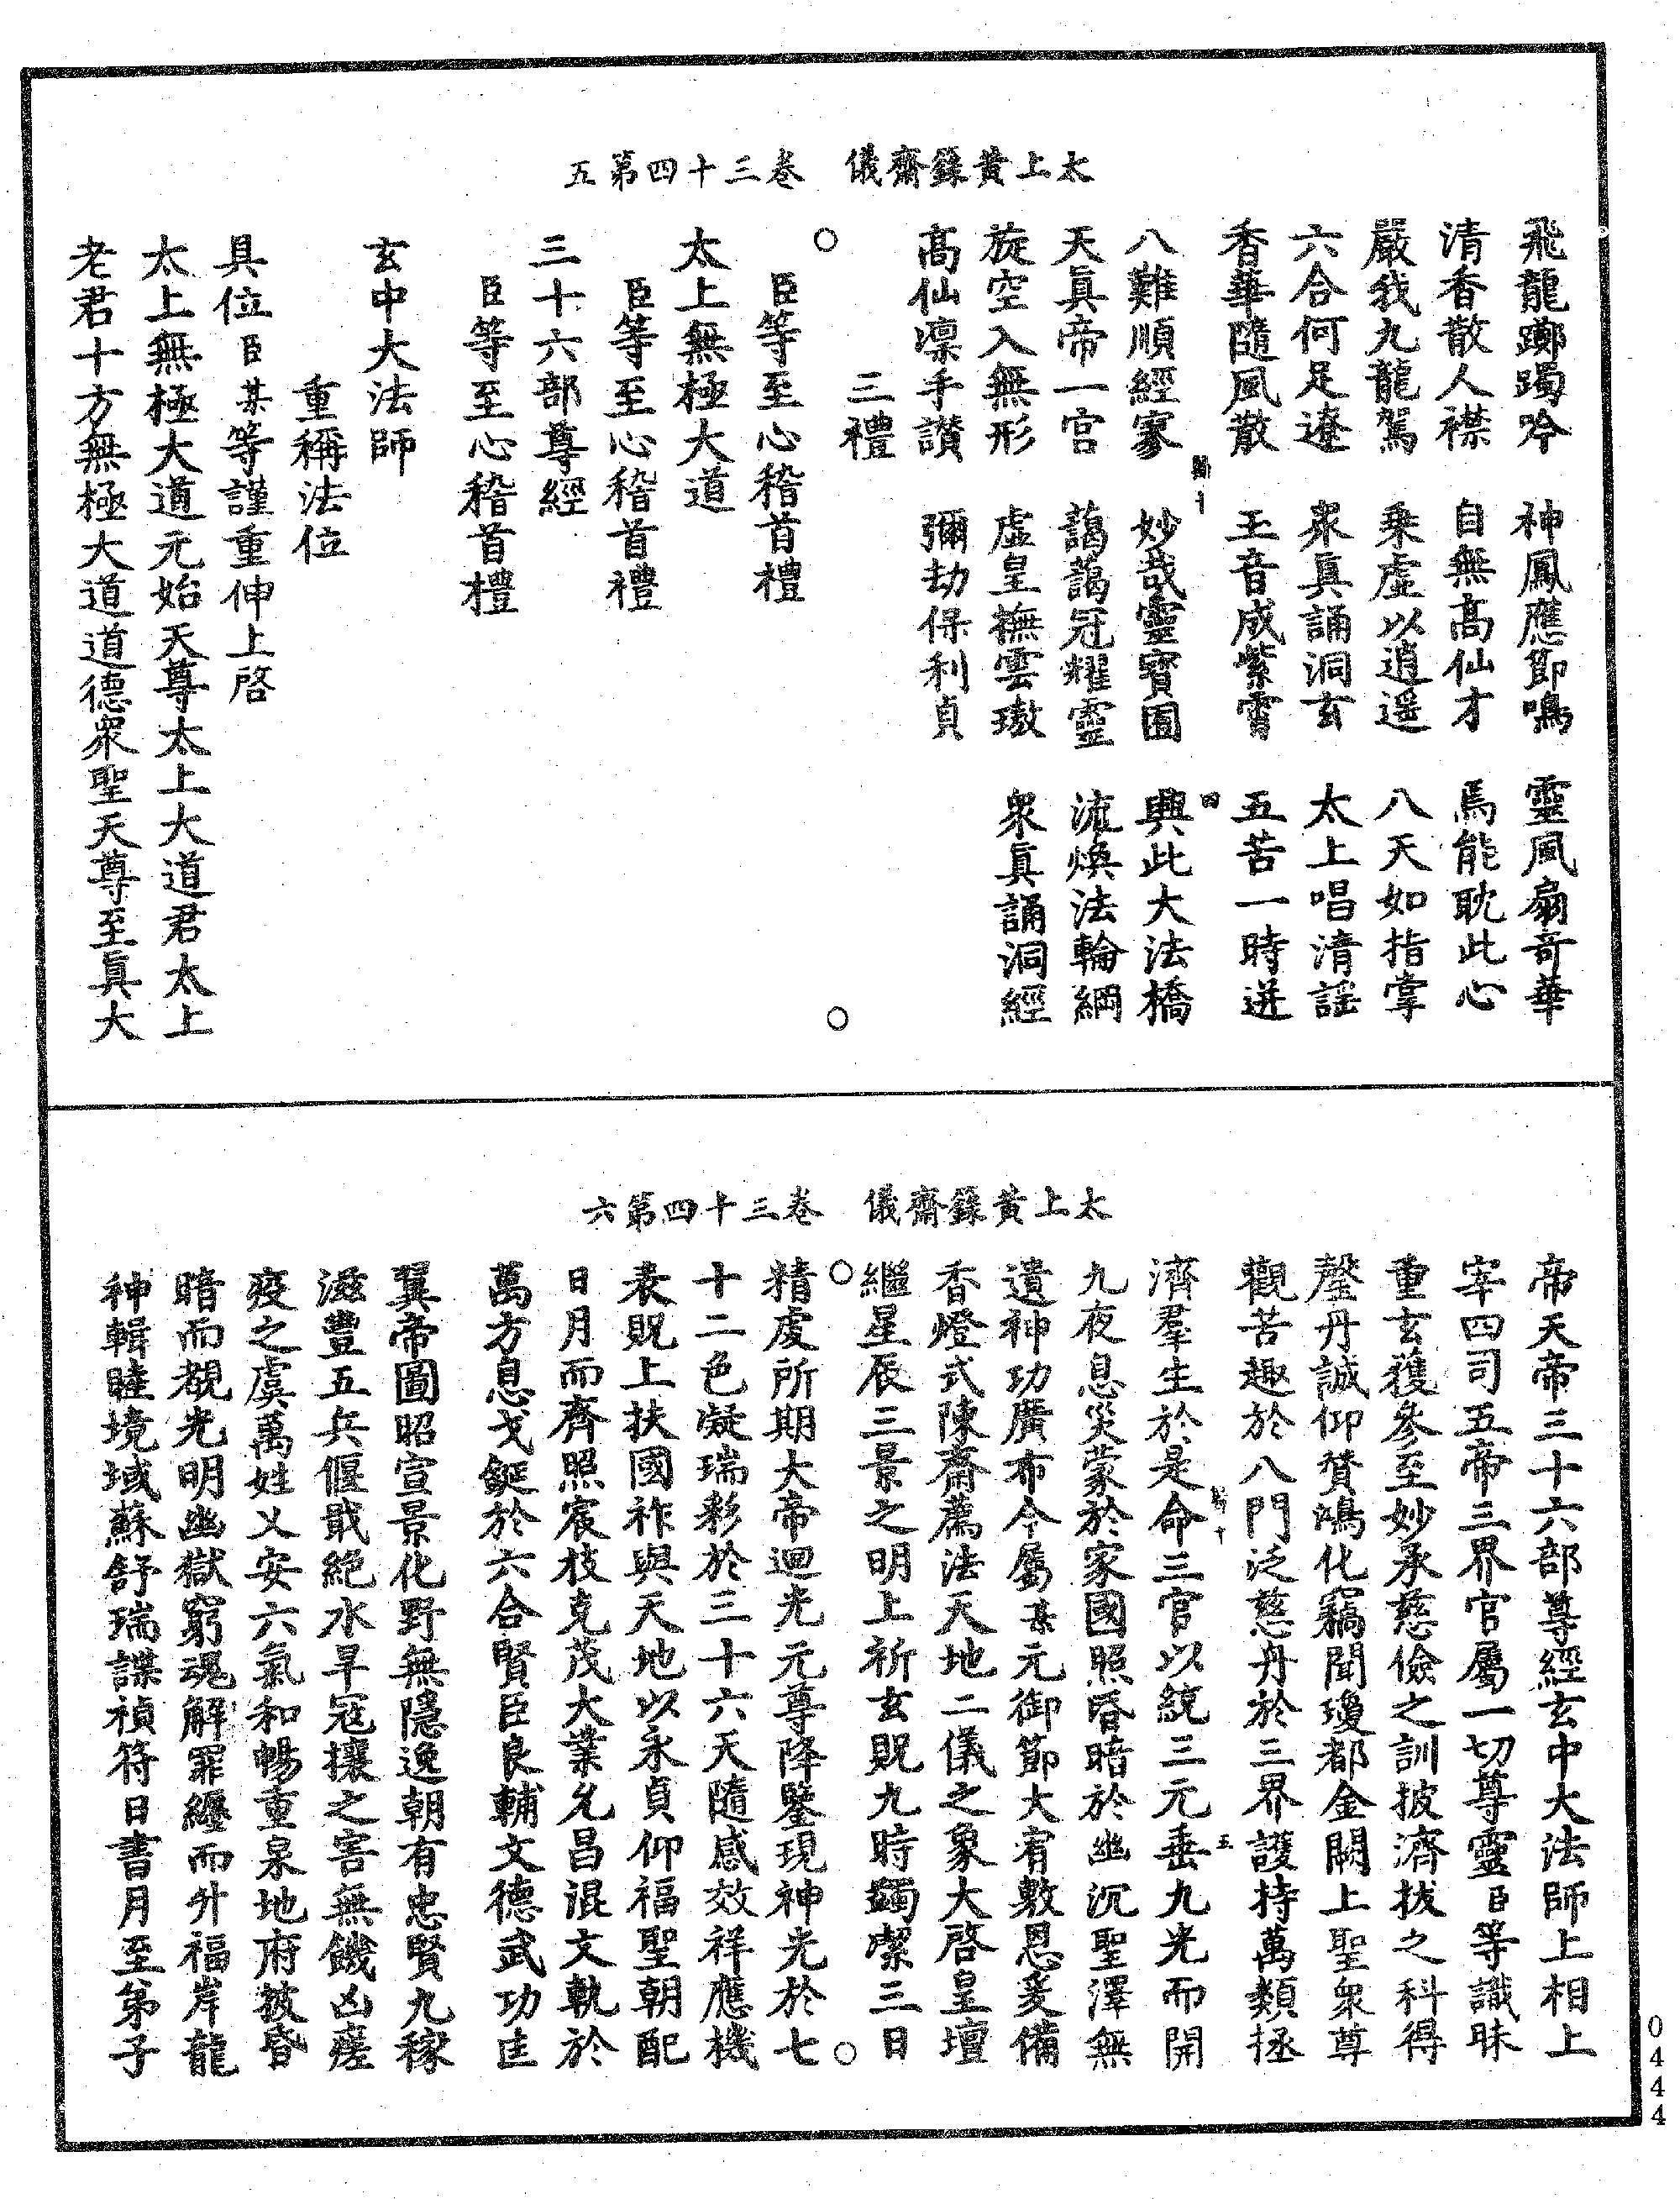 太上黃籙齋儀　卷三十四第五
飛龍躑躅吟　神鳳應節鳴　靈風扇奇華
清香散人襟　自無高仙才　焉能耽此心
嚴我九龍駕　乘虛以逍遥　八天如指掌
六合何足遼　衆真誦洞玄　太上唱清謡
香華隨風散　玉音成紫霄　五苦一時迸
八難順經寥　妙哉靈寶囿　興此大法橋
天真帝一宫　藹藹冠耀靈　流煥法輪綱
旋空入無形　虛皇撫雲璈　衆真誦洞經
高仙凛手讃　彌劫保利貞
三禮
臣等至心稽首禮
太上無極大道
臣等至心稽首禮
三十六部尊經
臣等至心稽首禮
玄中大法師
重稱法位
具位臣某等謹重伸上啓
太上無極大道元始天尊太上大道君太上
老君十方無極大道道德衆聖天尊至真大
太上黃籙齋儀　卷三十四第六
帝天帝三十六部尊經玄中大法師上相上
宰四司五帝三界官屬一切尊靈臣等識昧
重玄獲參至妙承慈儉之訓披濟拔之科得
罄丹誠仰賛鴻化竊聞瓊都金闕上聖衆尊
觀苦趣於八門泛慈丹於三界護持萬類拯
濟羣生於是命三官以統三元垂九光而開
九夜息災蒙於家國照昏暗於幽沉聖澤無
遺神功廣布今屬某元御節大宥敷恩爰備
香燈式陳齋薦法天地二儀之象大啓皇壇
繼星辰三景之明上祈玄貺九時蠲潔三日
精虔所期大帝迴光元尊降鑒現神光於七
十二色凝瑞彩於三十六天隨感效祥應機
表貺上扶國祚與天地以永貞仰福聖朝配
日月而齊照宸枝克茂大業允昌混文軌於
萬方息戈鋋於六合賢臣良輔文德武功匡
翼帝圖昭宣景化野無隱逸朝有忠賢九稼
滋豐五兵偃戢絶水旱冦攘之害無饑凶瘥
疫之虞萬姓乂安六氣和暢重泉地府披昏
暗而覩光明幽獄窮魂解罪纏而升福岸龍
神輯睦境域蘇舒瑞諜禎符日書月至弟子
0444